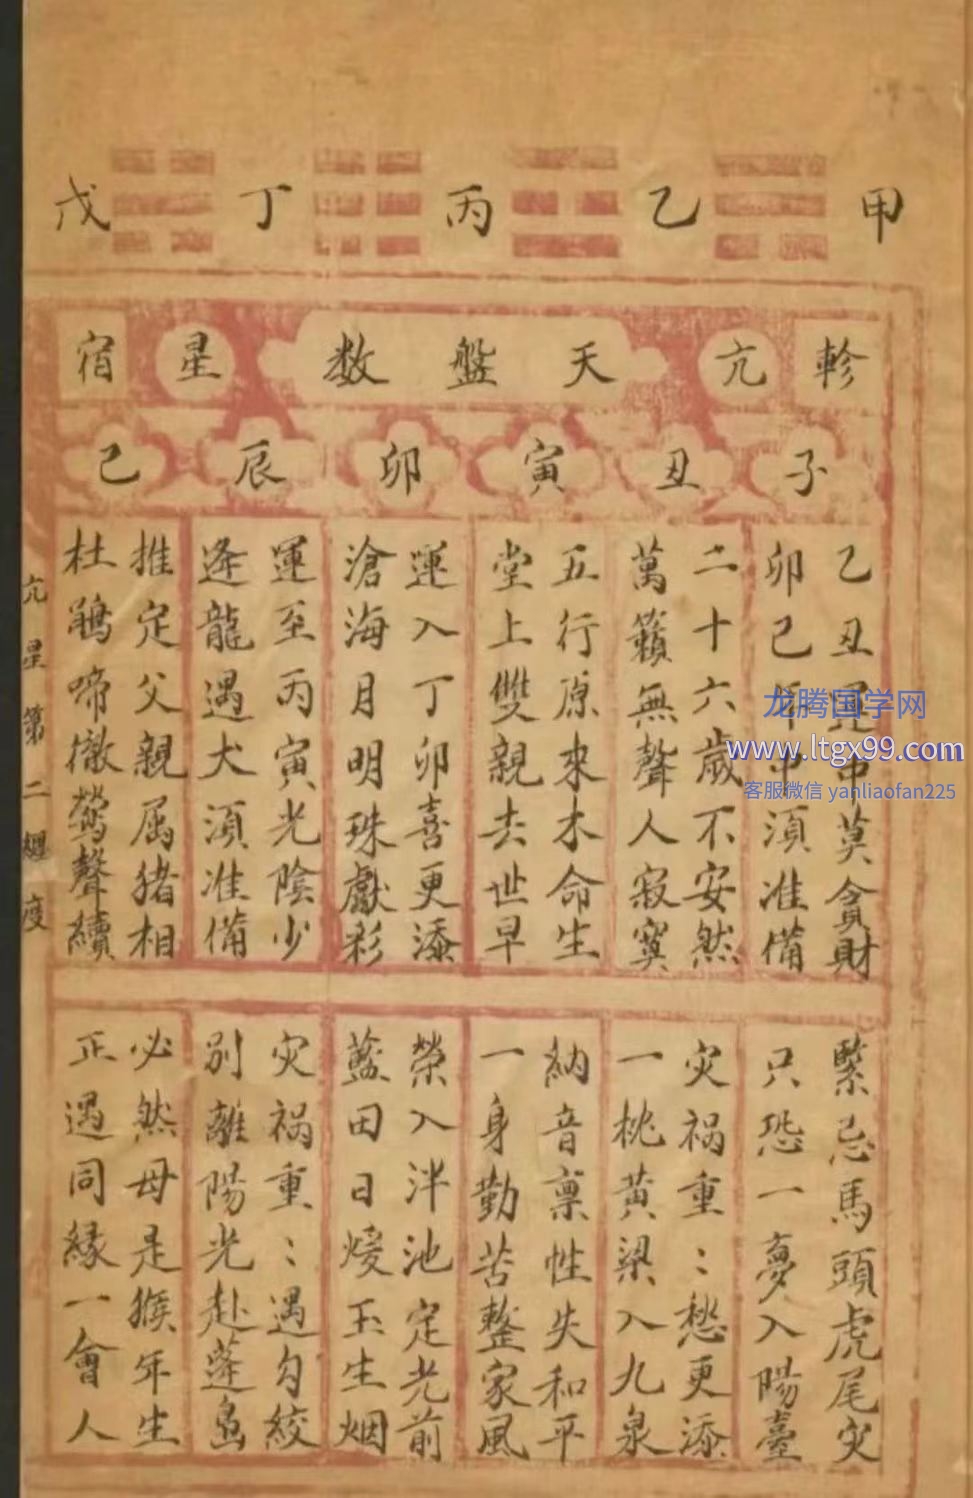 甲乙丙丁戊
軫亢天盤数星宿
子丑寅卯辰巳
乙丑運中莫貪財
卯巳年中須准備
二十六歲不安然
萬籟無聲人寂寞
五行原來木命生
堂上雙親去世早
運入丁卯喜更添
滄海月明珠獻彩
運至丙寅光陰少
逢龍遇犬須准備
推定父親属猪相
杜鵑啼徹鶯聲續
緊忌馬頭虎尾灾
只恐一夢入陽臺
灾祸重:愁更添
一枕黄梁入九泉
納音禀性失和平
一身勤苦整家風
榮入泮池定光前
藍田日煖玉生烟
灾祸重:遇勾絞
别離陽光赴蓬島
必然母是猴年生
正遇同緣一會人
亢星第二纏度
龙腾国学网
www.ltgx99.com
客服微信 yanliaofan225